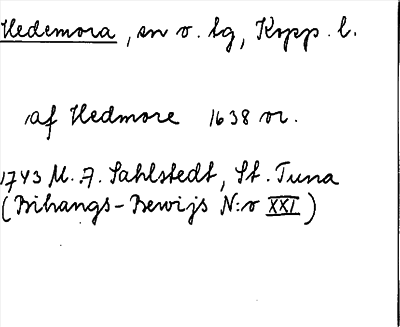 Hedemora, sn o. lg, Kopp. l.
af Hedmore 1638 or.
1743 M. A. Sahlstedt, St. Tuna
(Bihangs-Bewijs N:o XXI)